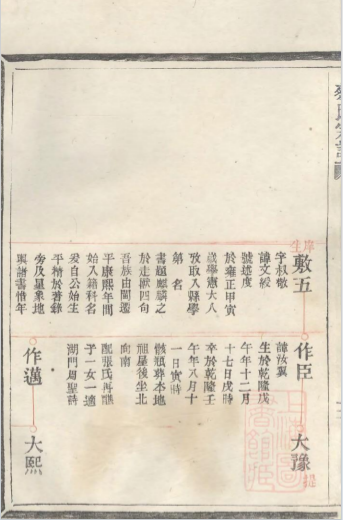 庠生
敷五
字叔敬
諱文綬
號述度
於雍正甲寅
歲學憲大人
攷取入縣學
第 名
書題麒麟之
於走獸四句
吾族由閩遷
平康熙年間
始入籍科名
爰自公始生
平精於著錄
旁及星象地
輿諸書惜年
作臣
諱汝翼
生於乾隆戊
午年十二月
十七日戌時
卒於乾隆壬
午年八月十
一日寅時
骸類葬本地
祖屋後坐北
向南
配張氏再醮
子一女一適
湖門周聖
大豫
作邁
大熙